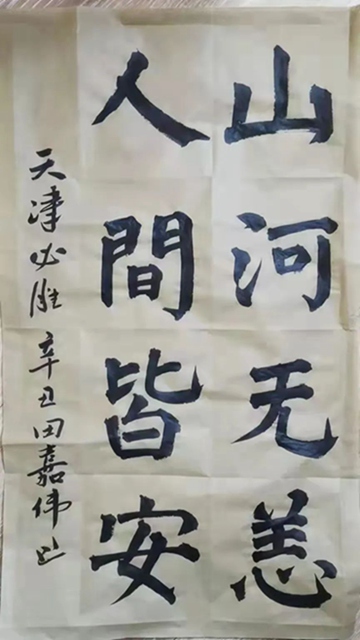 山河无恙
人間皆安
天津必胜 辛丑田嘉伟书